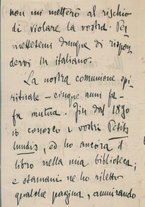 non mi metterò al rischio
di violare la vostra. Per-
mettetemi dunque di rispon-
dervi in italiano.
La nostra comunione spi-
rituale – cinque anni fa –
fu mutua. Fin dal 1890
io conosco i vostri Petits
lundis, ed ho ancora il
libro nella mia biblioteca;
e stamane ne ho riletto
qualche pagina, ammirando